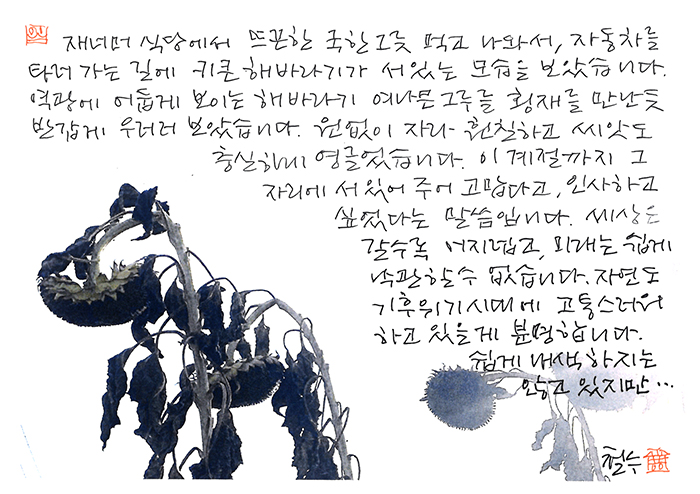 재너머 식당에서 뜨끈한 국한그릇 먹고 나와서, 자동차를
타러 가는 길에 키큰 해바라기가 서있는 모습을 보았습니다.
역광에 어둡게 보이는 해바라기 여나믄그루를 횡재를 만난듯
반갑게 우러러 보았습니다. 원없이 자라 훤칠하고 씨앗도
충실하게 영글었습니다. 이 계절까지 그
자리에 서 있어 주어 고맙다고, 인사하고
싶었다는 말씀입니다. 세상은
갈수록 어지럽고, 미래는 쉽게
낙관할수 없습니다. 자연도
기후위기시대에 고통스러워
하고 있을게 분명합니다.
쉽게 내색하지는
않고 있지만...
철수